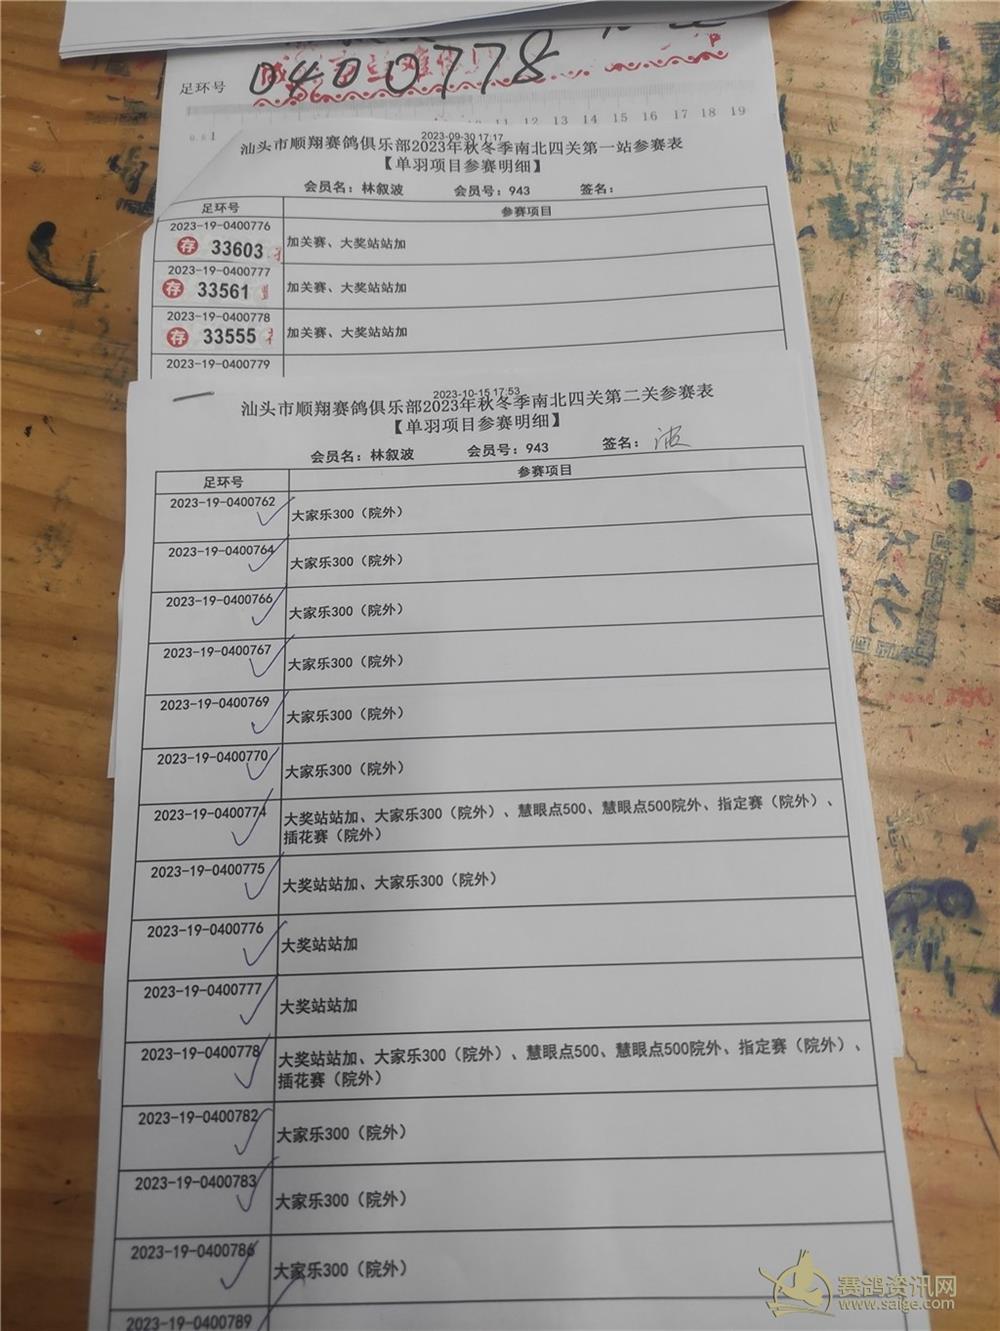 足环号
0400778
11 12 13 14 15 16 17 18 19
2023-09-30 17:17
汕头市顺翔赛鸽俱乐部2023年秋冬季南北四关第一站参赛表
【单羽项目参赛明细】
会员名：林叙波 会员号：943 签名：
足环号 参赛项目
2023-19-0400776
存 33603 加关赛、大奖站站加
2023-19-0400777
存 33561 加关赛、大奖站站加
2023-19-0400778
存 33555 加关赛、大奖站站加
2023-19-0400779
2023-10-15 17:53
汕头市顺翔赛鸽俱乐部2023年秋冬季南北四关第二关参赛表
【单羽项目参赛明细】
会员名：林叙波 会员号：943 签名：波
足环号 参赛项目
2023-19-0400762 大家乐300（院外）
2023-19-0400764 大家乐300（院外）
2023-19-0400766 大家乐300（院外）
2023-19-0400767 大家乐300（院外）
2023-19-0400769 大家乐300（院外）
2023-19-0400770 大家乐300（院外）
2023-19-0400774 大奖站站加、大家乐300（院外）、慧眼点500、慧眼点500院外、指定赛（院外）、
插花赛（院外）
2023-19-0400775 大奖站站加、大家乐300（院外）
2023-19-0400776 大奖站站加
2023-19-0400777 大奖站站加
2023-19-0400778 大奖站站加、大家乐300（院外）、慧眼点500、慧眼点500院外、指定赛（院外）、
插花赛（院外）
2023-19-0400782 大家乐300（院外）
2023-19-0400783 大家乐300（院外）
2023-19-0400786 大家乐300（院外）
2023-19-0400789
赛鸽资讯网
www.saige.com